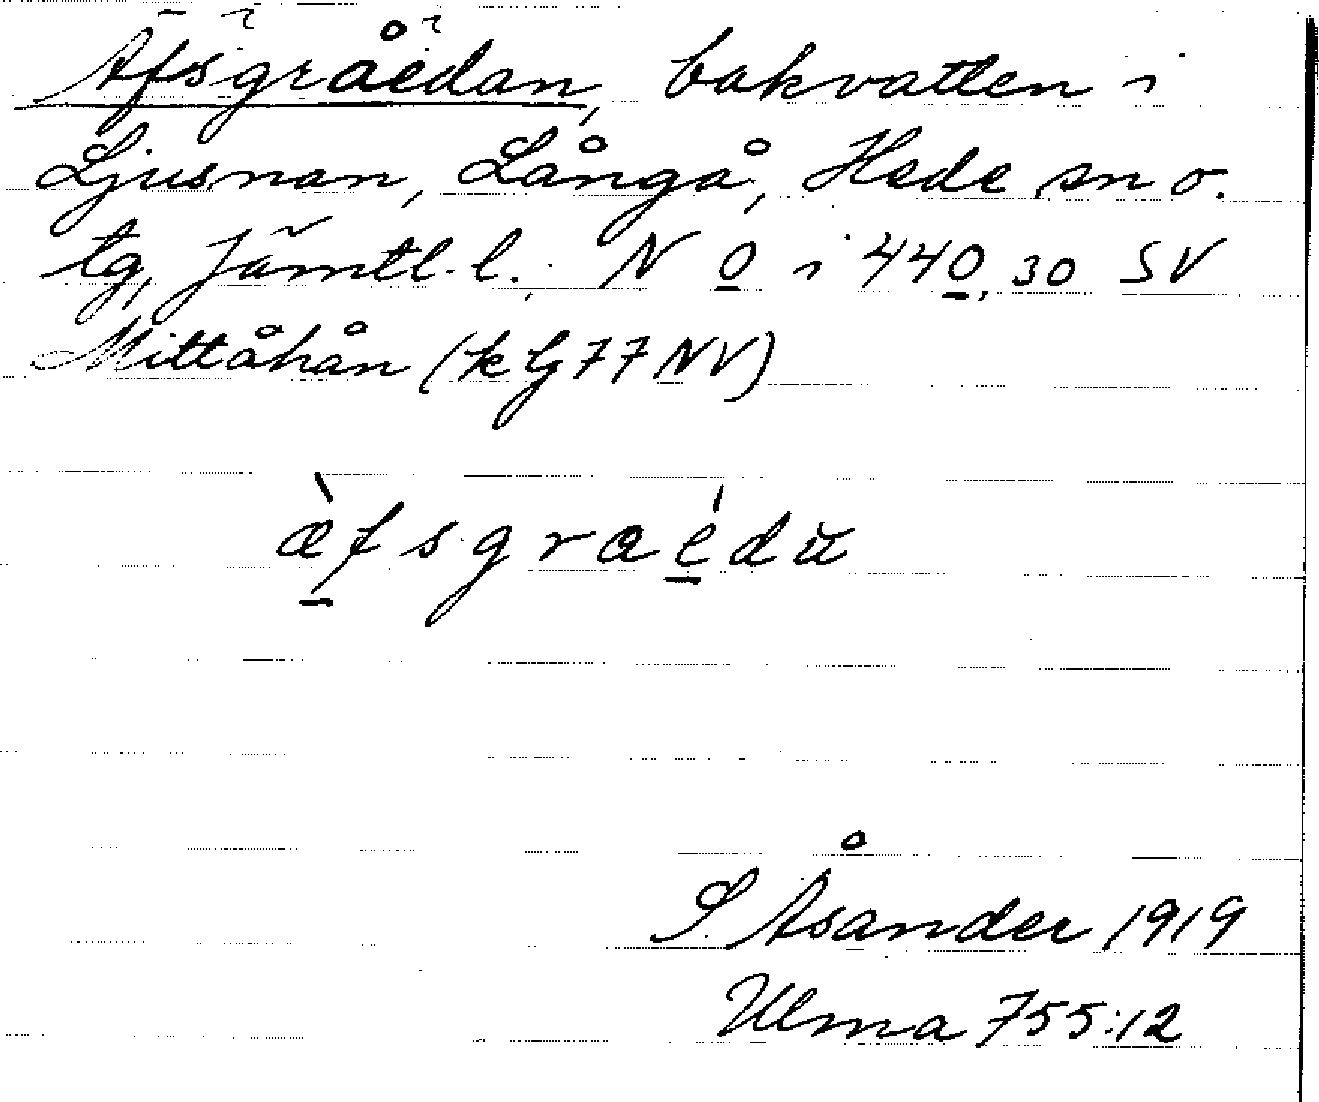 Äfsgråëdan, bakvatten i
Ljusnan, Långå, Hede sn o.
tg, Jämtl. l. N 0 i 440, 30 SV
Mittåhån (k G 77 NV)
æ̀fsgraédŭ
S. Åsander 1919
Ulma 755:12